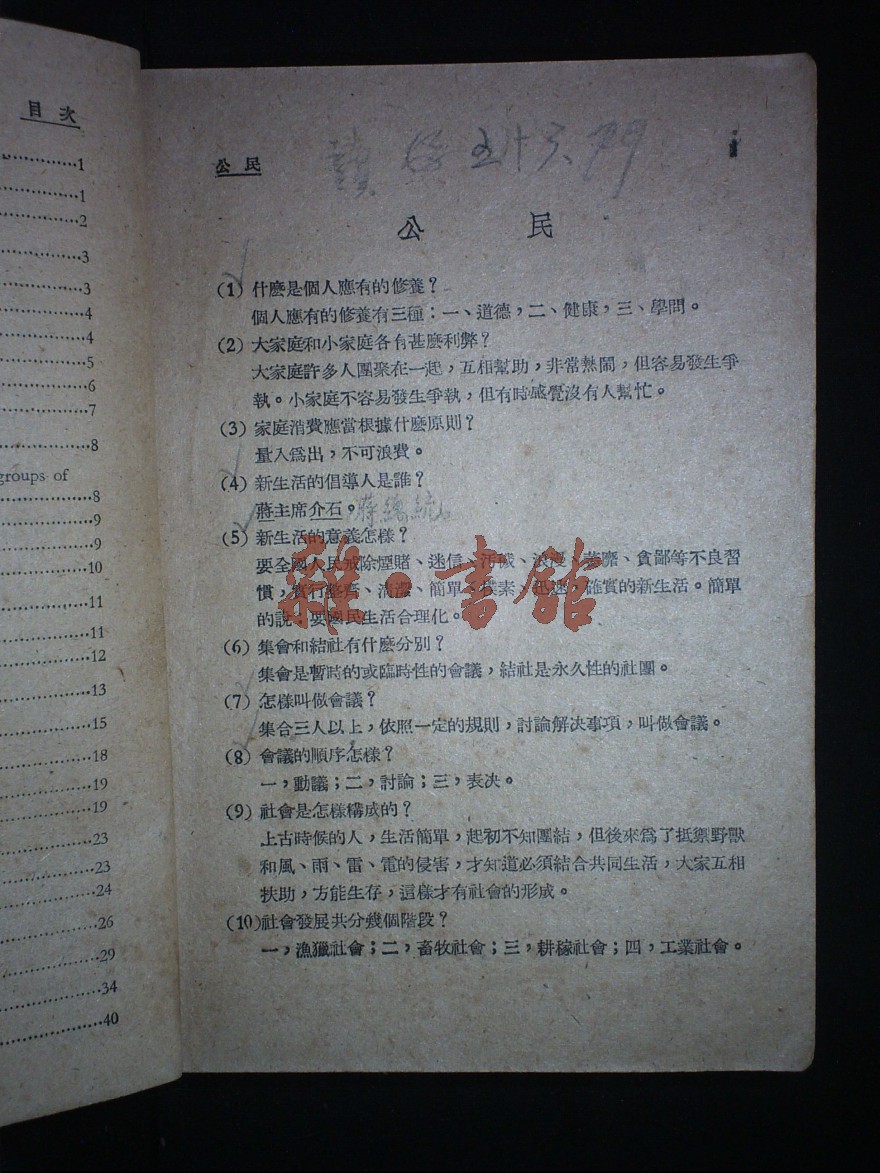 目次
1
1
2
3
3
4
4
5
6
7
8
groups of
8
9
9
10
11
11
12
13
15
18
19
19
23
23
24
26
29
34
40
公民
i
五十六
公民
(1) 什麽是個人應有的修養？
個人應有的修養有三種：一、道德，二、健康，三、學問。
(2) 大家庭和小家庭各有甚麽利弊？
大家庭許多人團聚在一起，互相幫助，非常熱閙，但容易發生爭
執。小家庭不容易發生爭執，但有時感覺沒有人幫忙。
(3) 家庭消費應當根據什麽原則？
量入爲出，不可浪費。
(4) 新生活的倡導人是誰？
蔣主席介石。蔣總統
(5) 新生活的意義怎樣？
要全國人民戒除煙賭、迷信、汙穢、浪漫、萎靡、貪鄙等不良習
慣，實行整齊、清潔、簡單、樸素、迅速，確實的新生活。簡單
的說，要國民生活合理化。
雜·書館
(6) 集會和結社有什麽分别？
集會是暫時的或臨時性的會議，結社是永久性的社團。
(7) 怎樣叫做會議？
集合三人以上，依照一定的規則，討論解决事項，叫做會議。
(8) 會議的順序怎樣？
一，動議；二，討論；三，表决。
(9) 社會是怎樣構成的？
上古時候的人，生活簡單，起初不知團結，但後來爲了抵禦野獸
和風、雨、雷、電的侵害，才知道必須結合共同生活，大家互相
扶助，方能生存，這樣才有社會的形成。
(10)社會發展共分幾個階段？
一，漁獵社會；二，畜牧社會；三，耕稼社會；四，工業社會。